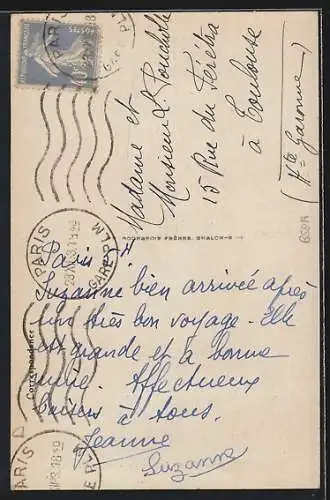 Madame et
Monsieur L.
15 Rue du Férétra
à Toulouse
(Hte Garonne)
Paris
Suzanne bien arrivée après
un très bon voyage. Elle
est grande et a bonne
mine. Affectueux
baisers à tous.
Jeanne
Suzanne
Correspondance
BOURGEOIS FRÈRES, CHALON-S
PARIS
GARE PLM
POSTES